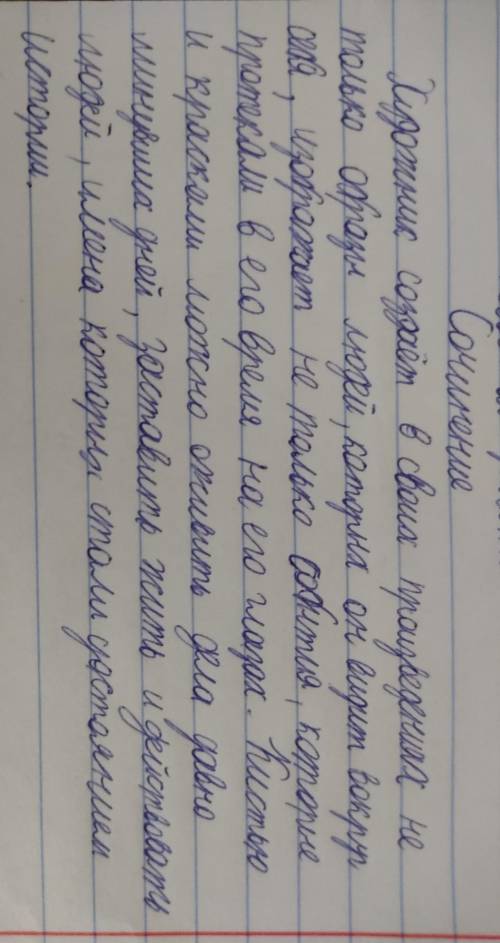 Сочинение
Художник создаёт в своих произведениях не
только образы людей, которых он видит вокруг
себя, изображает не только события, которые
протекали в его время на его глазах. Кистью
и красками можно оживить дела давно
минувших дней, заставить жить и действовать
людей, имена которых стали достоянием
истории.